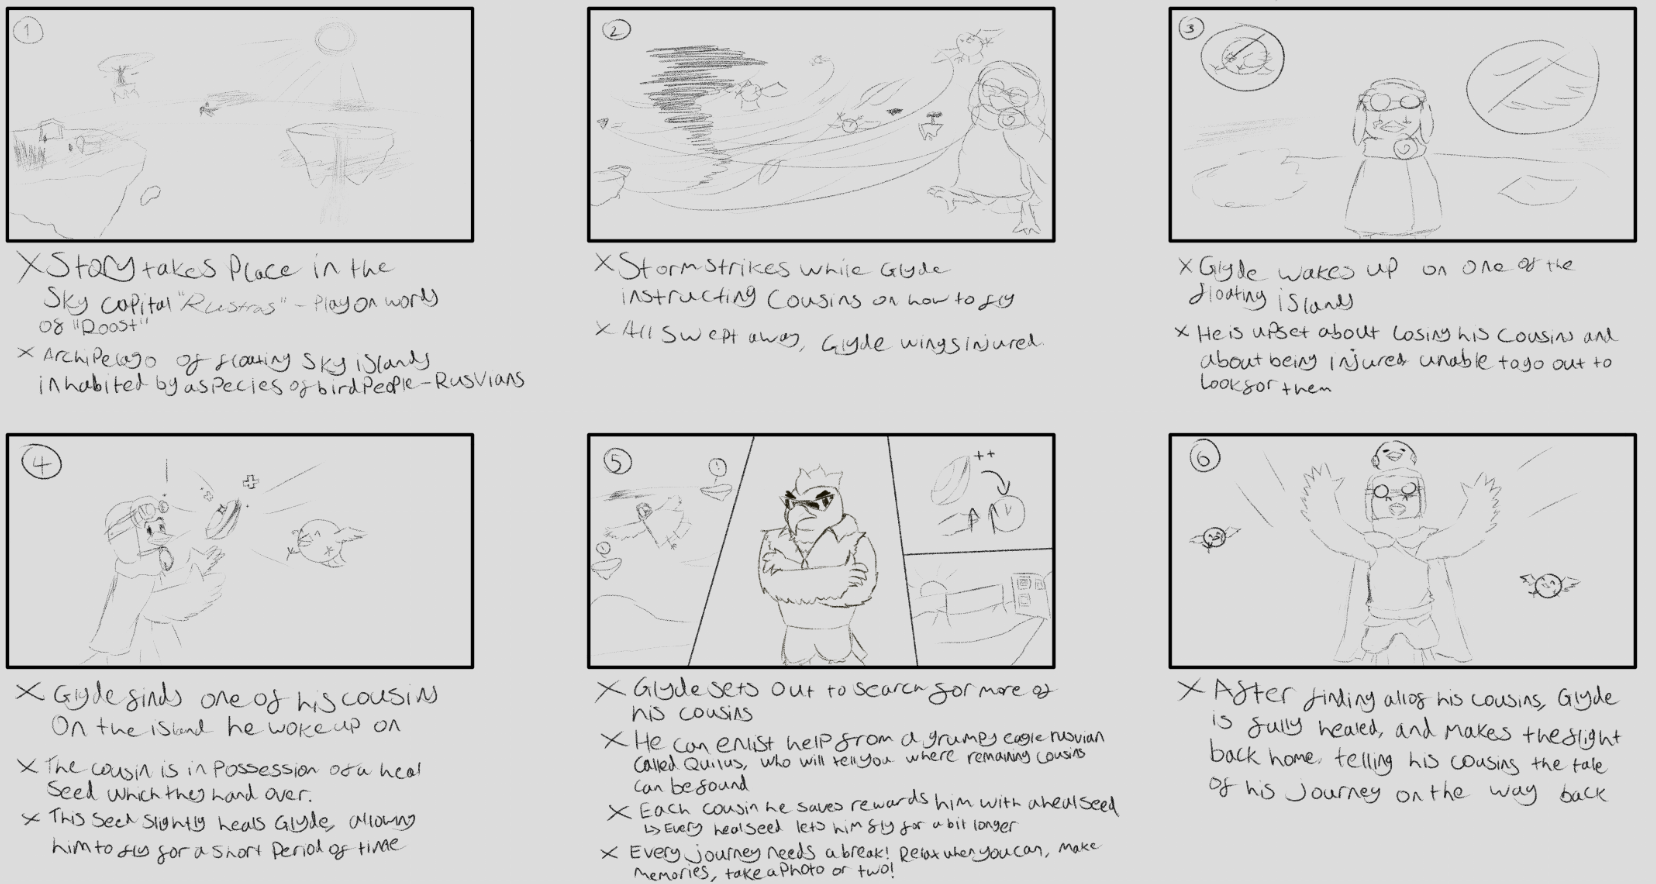 1
X Story takes Place in the
Sky capital "Rustras" - Play on words
of "Roost"
X Archipelago of floating sky islands
inhabited by a species of bird People - Rusvians
2
X Storm strikes while Glyde
instructing Cousins on how to fly
X All swept away, Glyde wings injured.
3
X Glyde wakes up on one of the
floating islands
X He is upset about losing his cousins and
about being injured unable to go out to
look for them
4
X Glyde finds one of his cousins
On the island he woke up on
X The cousin is in Possession of a heal
Seed which they hand over.
X This seed slightly heals Glyde, allowing
him to fly for a short Period of time
5
!
!
++
X Glyde sets out to search for more of
his cousins
X He can enlist help from a grumpy eagle rusvian
called Quilus, who will tell you where remaining cousins
can be found
X Each cousin he saves rewards him with a heal seed
↳ Every heal seed lets him fly for a bit longer
X Every journey needs a break! Relax when you can, make
memories, take a Photo or two!
6
X After finding all of his cousins, Glyde
is fully healed, and makes the flight
back home, telling his cousins the tale
of his journey on the way back